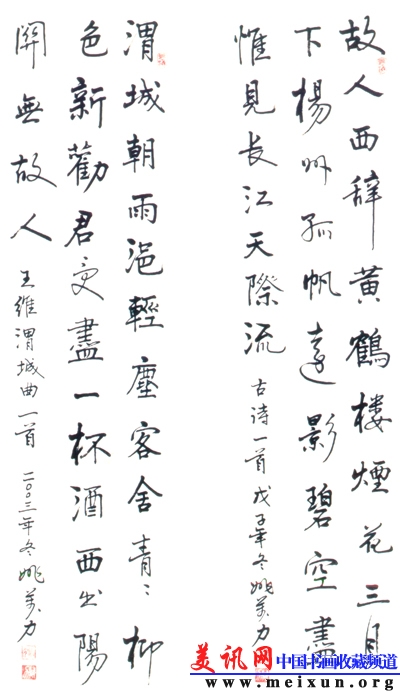 故人西辭黃鶴楼煙花三月
下楊州孤帆遠影碧空盡
惟見長江天際流 古诗一首戊子年冬姚萬力
渭城朝雨浥輕塵客舍青〻柳
色新勸君更盡一杯酒西出陽
關無故人 王維渭城曲一首 二〇〇三年冬姚萬力
美讯网 中国书画收藏频道
www.meixun.org